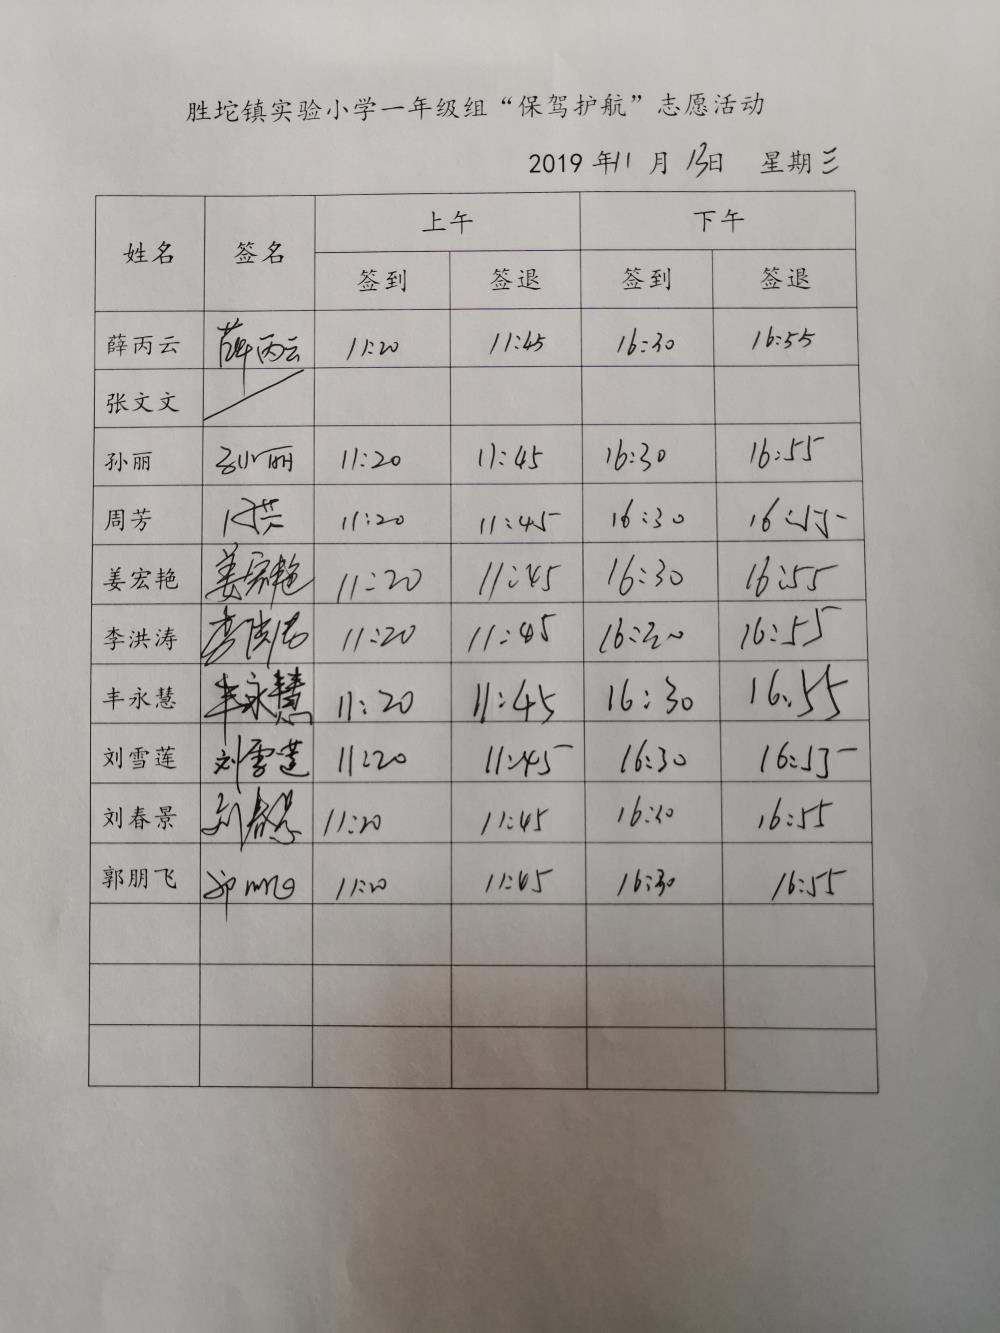 胜坨镇实验小学一年级组“保驾护航”志愿活动
2019 年 11 月 13日 星期三
姓名 签名 上午 下午
签到 签退 签到 签退
薛丙云 薛丙云 11:20 11:45 16:30 16:55
张文文
孙丽 孙丽 11:20 11:45 16:30 16:55
周芳 周芳 11:20 11:45 16:30 16:55
姜宏艳 姜宏艳 11:20 11:45 16:30 16:55
李洪涛 李洪涛 11:20 11:45 16:30 16:55
丰永慧 丰永慧 11:20 11:45 16:30 16:55
刘雪莲 刘雪莲 11:20 11:45 16:30 16:55
刘春景 刘春景 11:20 11:45 16:30 16:55
郭朋飞 郭朋飞 11:20 11:45 16:30 16:55